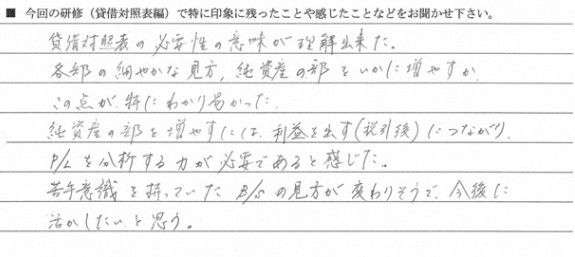 ■ 今回の研修（貸借対照表編）で特に印象に残ったことや感じたことなどをお聞かせ下さい。
貸借対照表の必要性の意味が理解出来た。
各部の細やかな見方、純資産の部をいかに増やすか
この点が、特にわかり易かった。
純資産の部を増やすには、利益を出す（税引後）につながり、
P/Lを分析する力が必要であると感じた。
苦手意識を持っていたB/Sの見方が変わりそうで、今後に
活かしたいと思う。